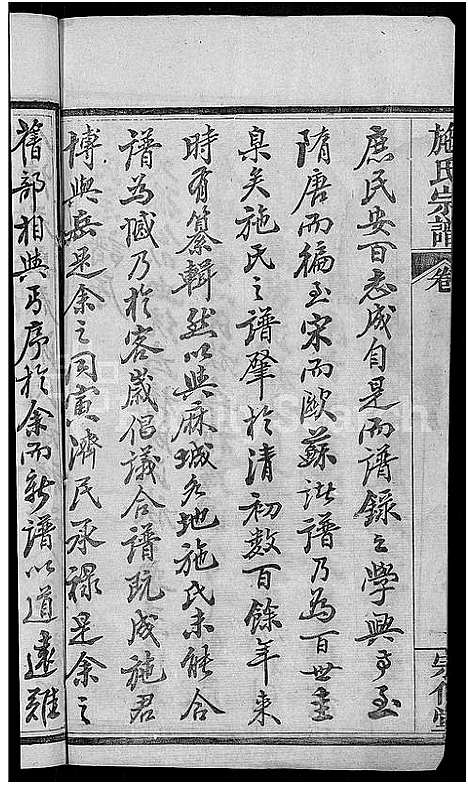 施氏宗譜
卷
庶民安百志成自是而譜錄之學興焉至
隋唐而徧至宋而歐蘇諸譜乃為百世圭
臬矣施氏之譜肇於清初數百餘年來
時有纂輯然以與麻城各地施氏未能合
譜為憾乃於客歲倡議合譜既成施君
博與岳是余之同寅濟民承祿是余之
舊部相與丐序於余而新譜以道遠雖